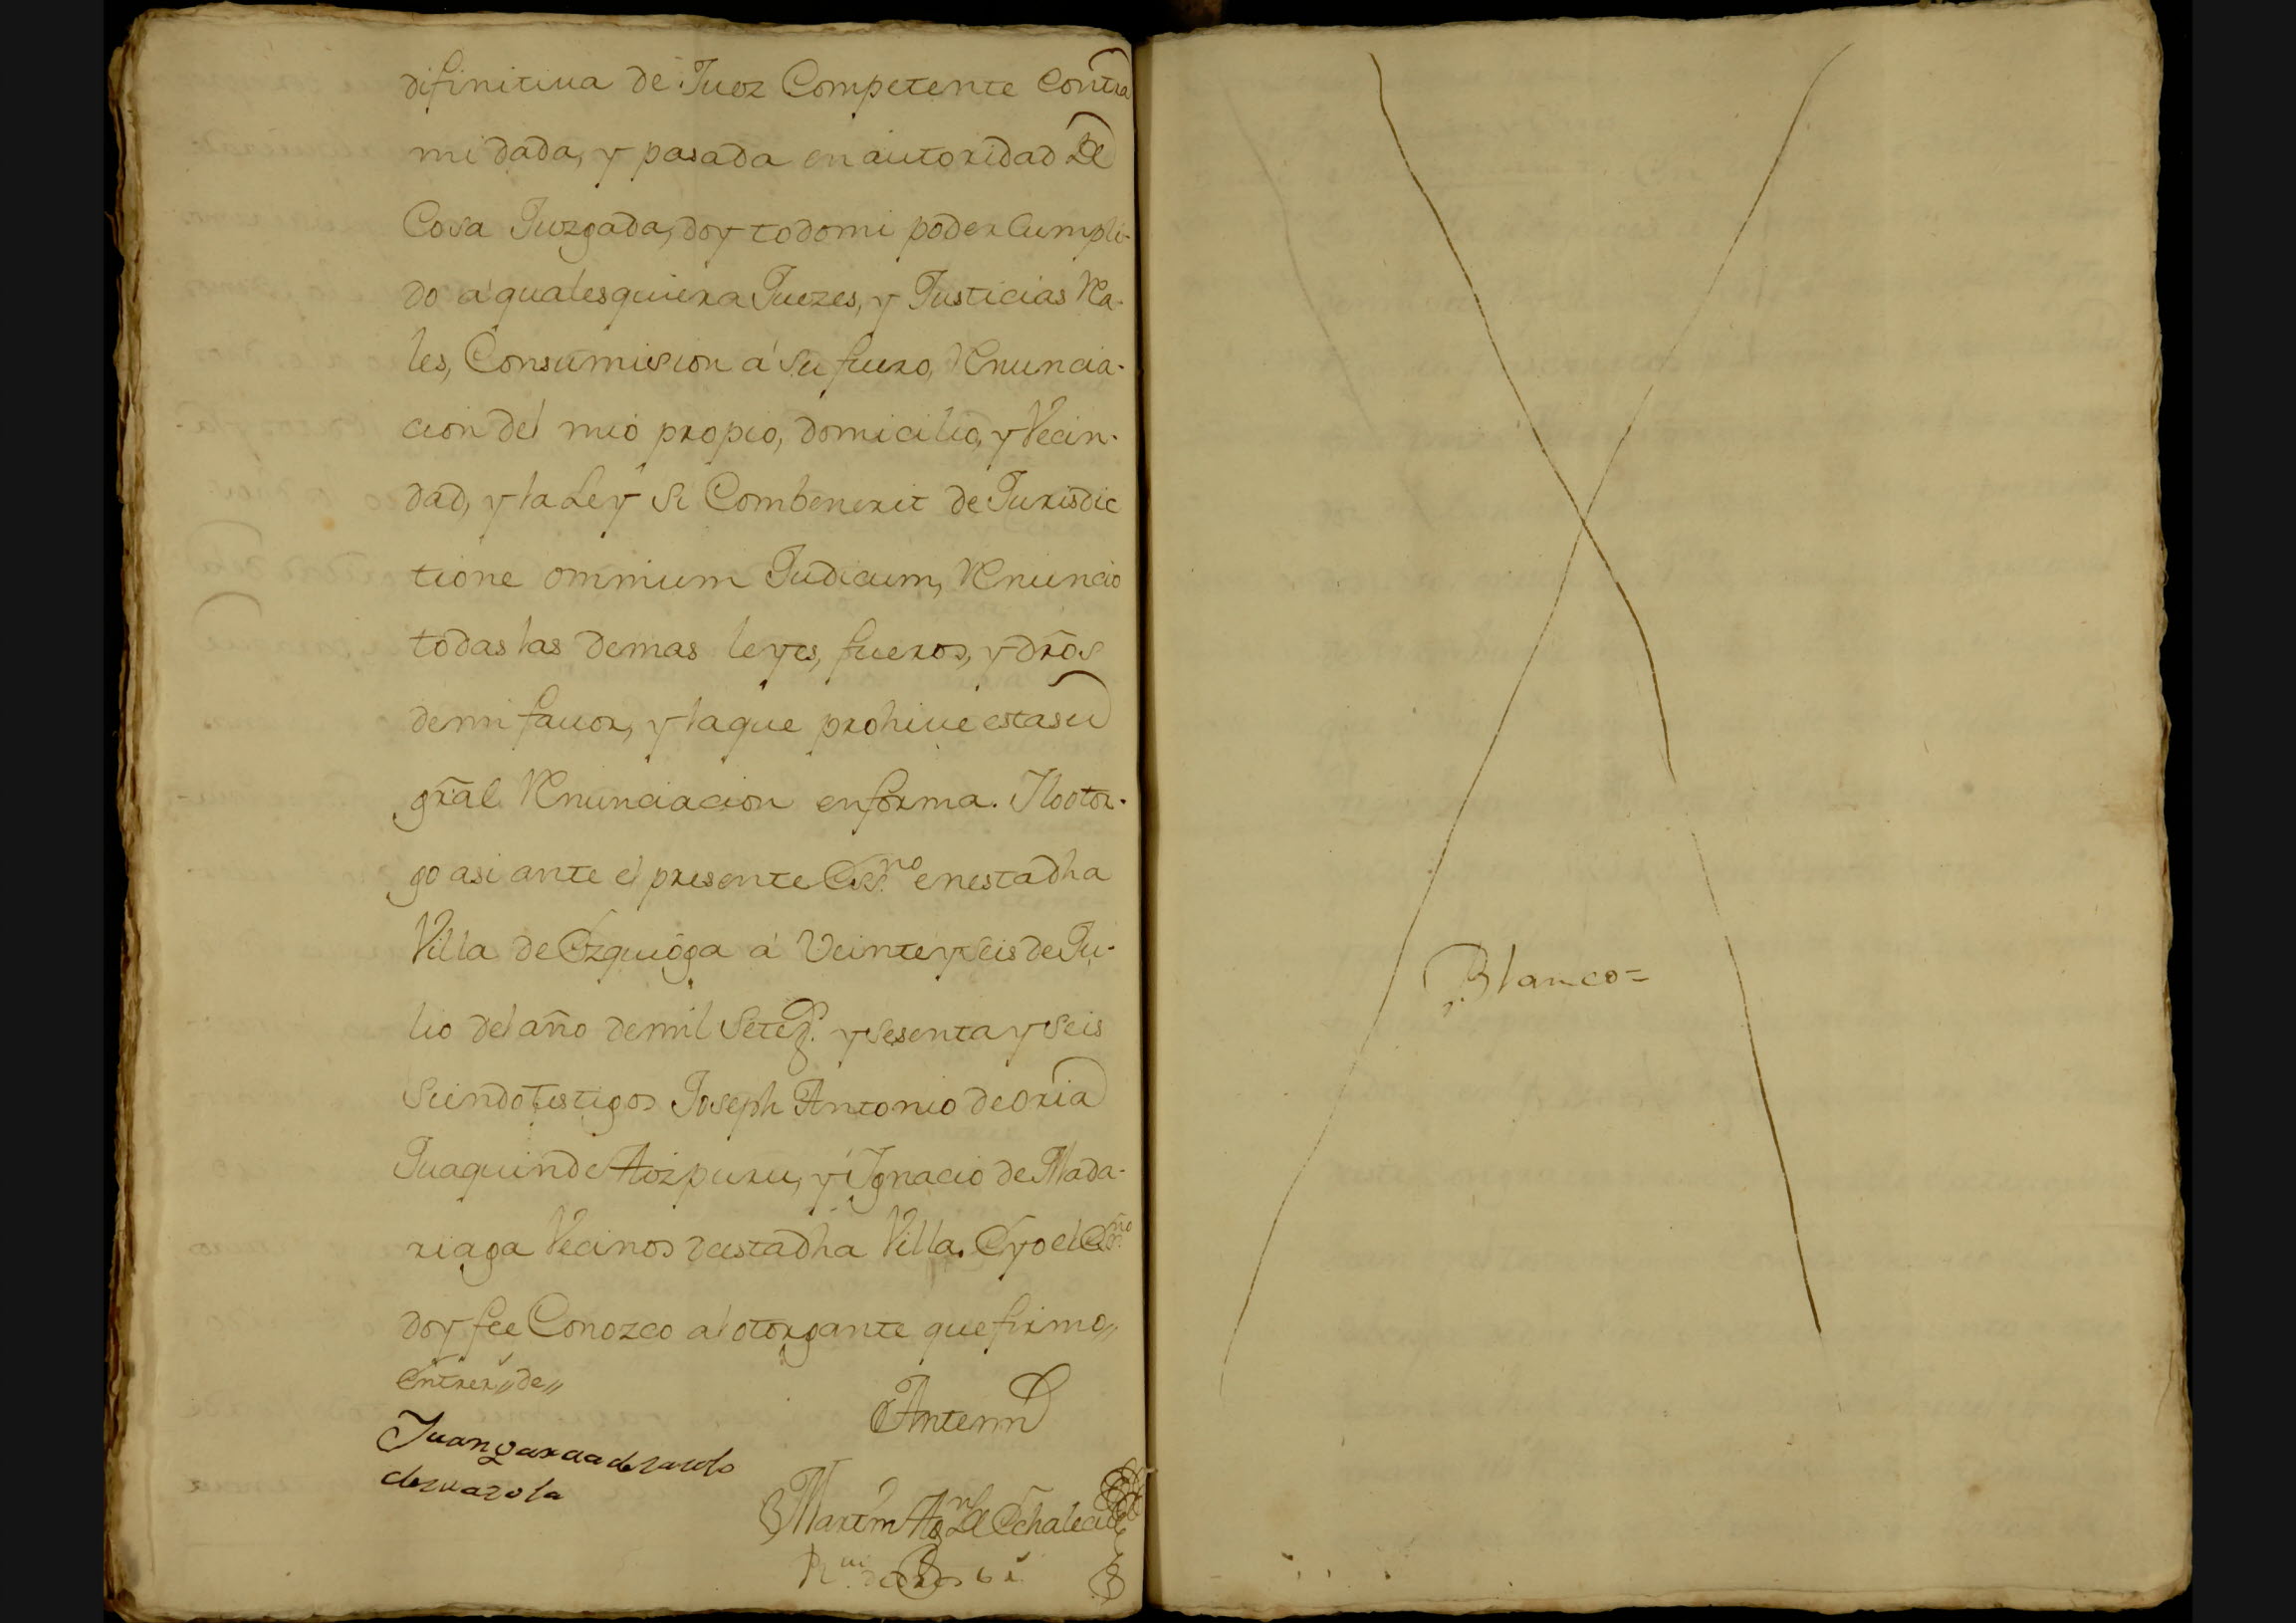 difinitiua de Juez Competente Contra
mi dada, y pasada en autoridad de
Cosa Juzgada, doy todo mi poder Cumpli-
do a' qualesquiera Juezes, y Justicias Rea-
les, Consumision á su fuero, Renuncia-
cion del mio propio, domicilio, y Vecin-
dad, y la Ley Si Combenerit de Jurisdic
tione omnium Judicum, Renuncio
todas las demas leyes, fueros, y dr̃os
de mi fauor, y la que prohiue esta su
gr̃al Renunciacion en forma. I lo otor-
go asi ante el presente Es.no en esta dha
Villa de Ezquioga á Veinte y Seis de Ju-
lio del año de mil Setez.s y sesenta y seis
Siendo testigos Joseph Antonio de Oria
Juaquin de Aizpuru, y Ignacio de Mada-
riaga Vecinos de esta dha Villa. E yo el Es.no
doy fee Conozco al otorgante que firmo,,
Entrer,,de,,
Juan garcia de
de zuazola
Antemi
Martin Ag.n de Echalecu
Blanco=